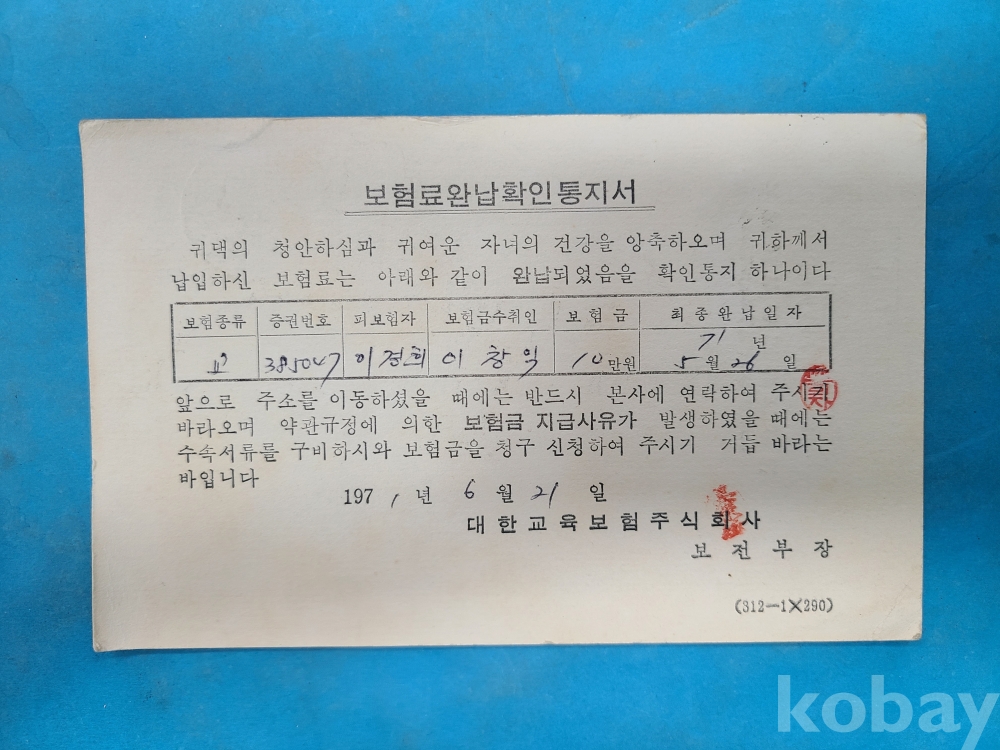 보험료완납확인통지서
귀댁의 청안하심과 귀여운 자녀의 건강을 앙축하오며 귀하께서
납입하신 보험료는 아래와 같이 완납되었음을 확인통지 하나이다
보험종류 증권번호 피보험자 보험금수취인 보험금 최종완납일자
교 385047 이경희 이창익 10만원 71년 5월 26일
앞으로 주소를 이동하셨을 때에는 반드시 본사에 연락하여 주시기
바라오며 약관규정에 의한 보험금 지급사유가 발생하였을 때에는
수속서류를 구비하시와 보험금을 청구 신청하여 주시기 거듭 바라는
바입니다
1971년 6월 21일
대한교육보험주식회사
보전부장
(312-1×290)
kobay